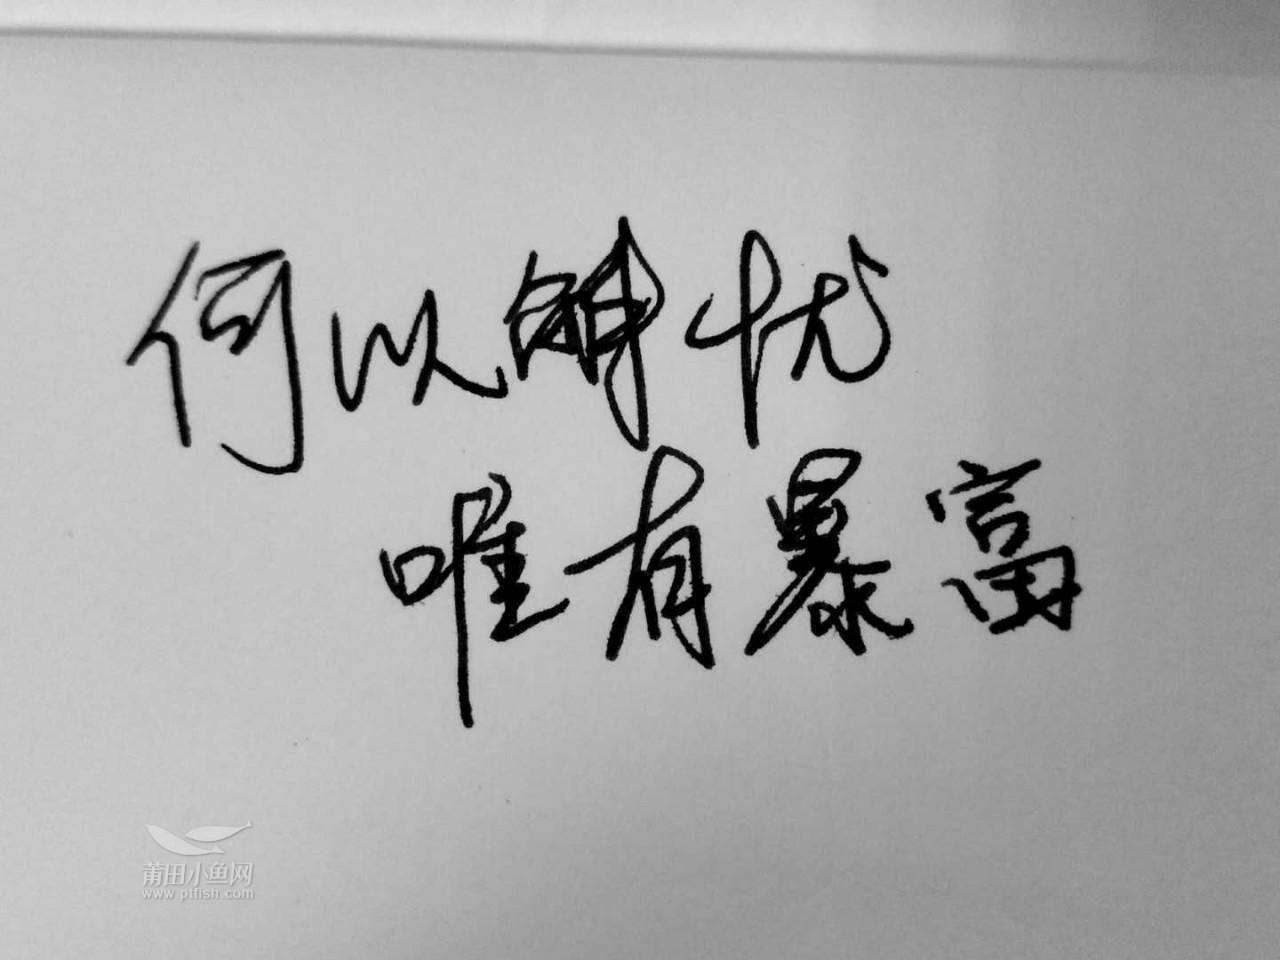 何以解忧
唯有暴富
莆田小鱼网
www.ptfish.com